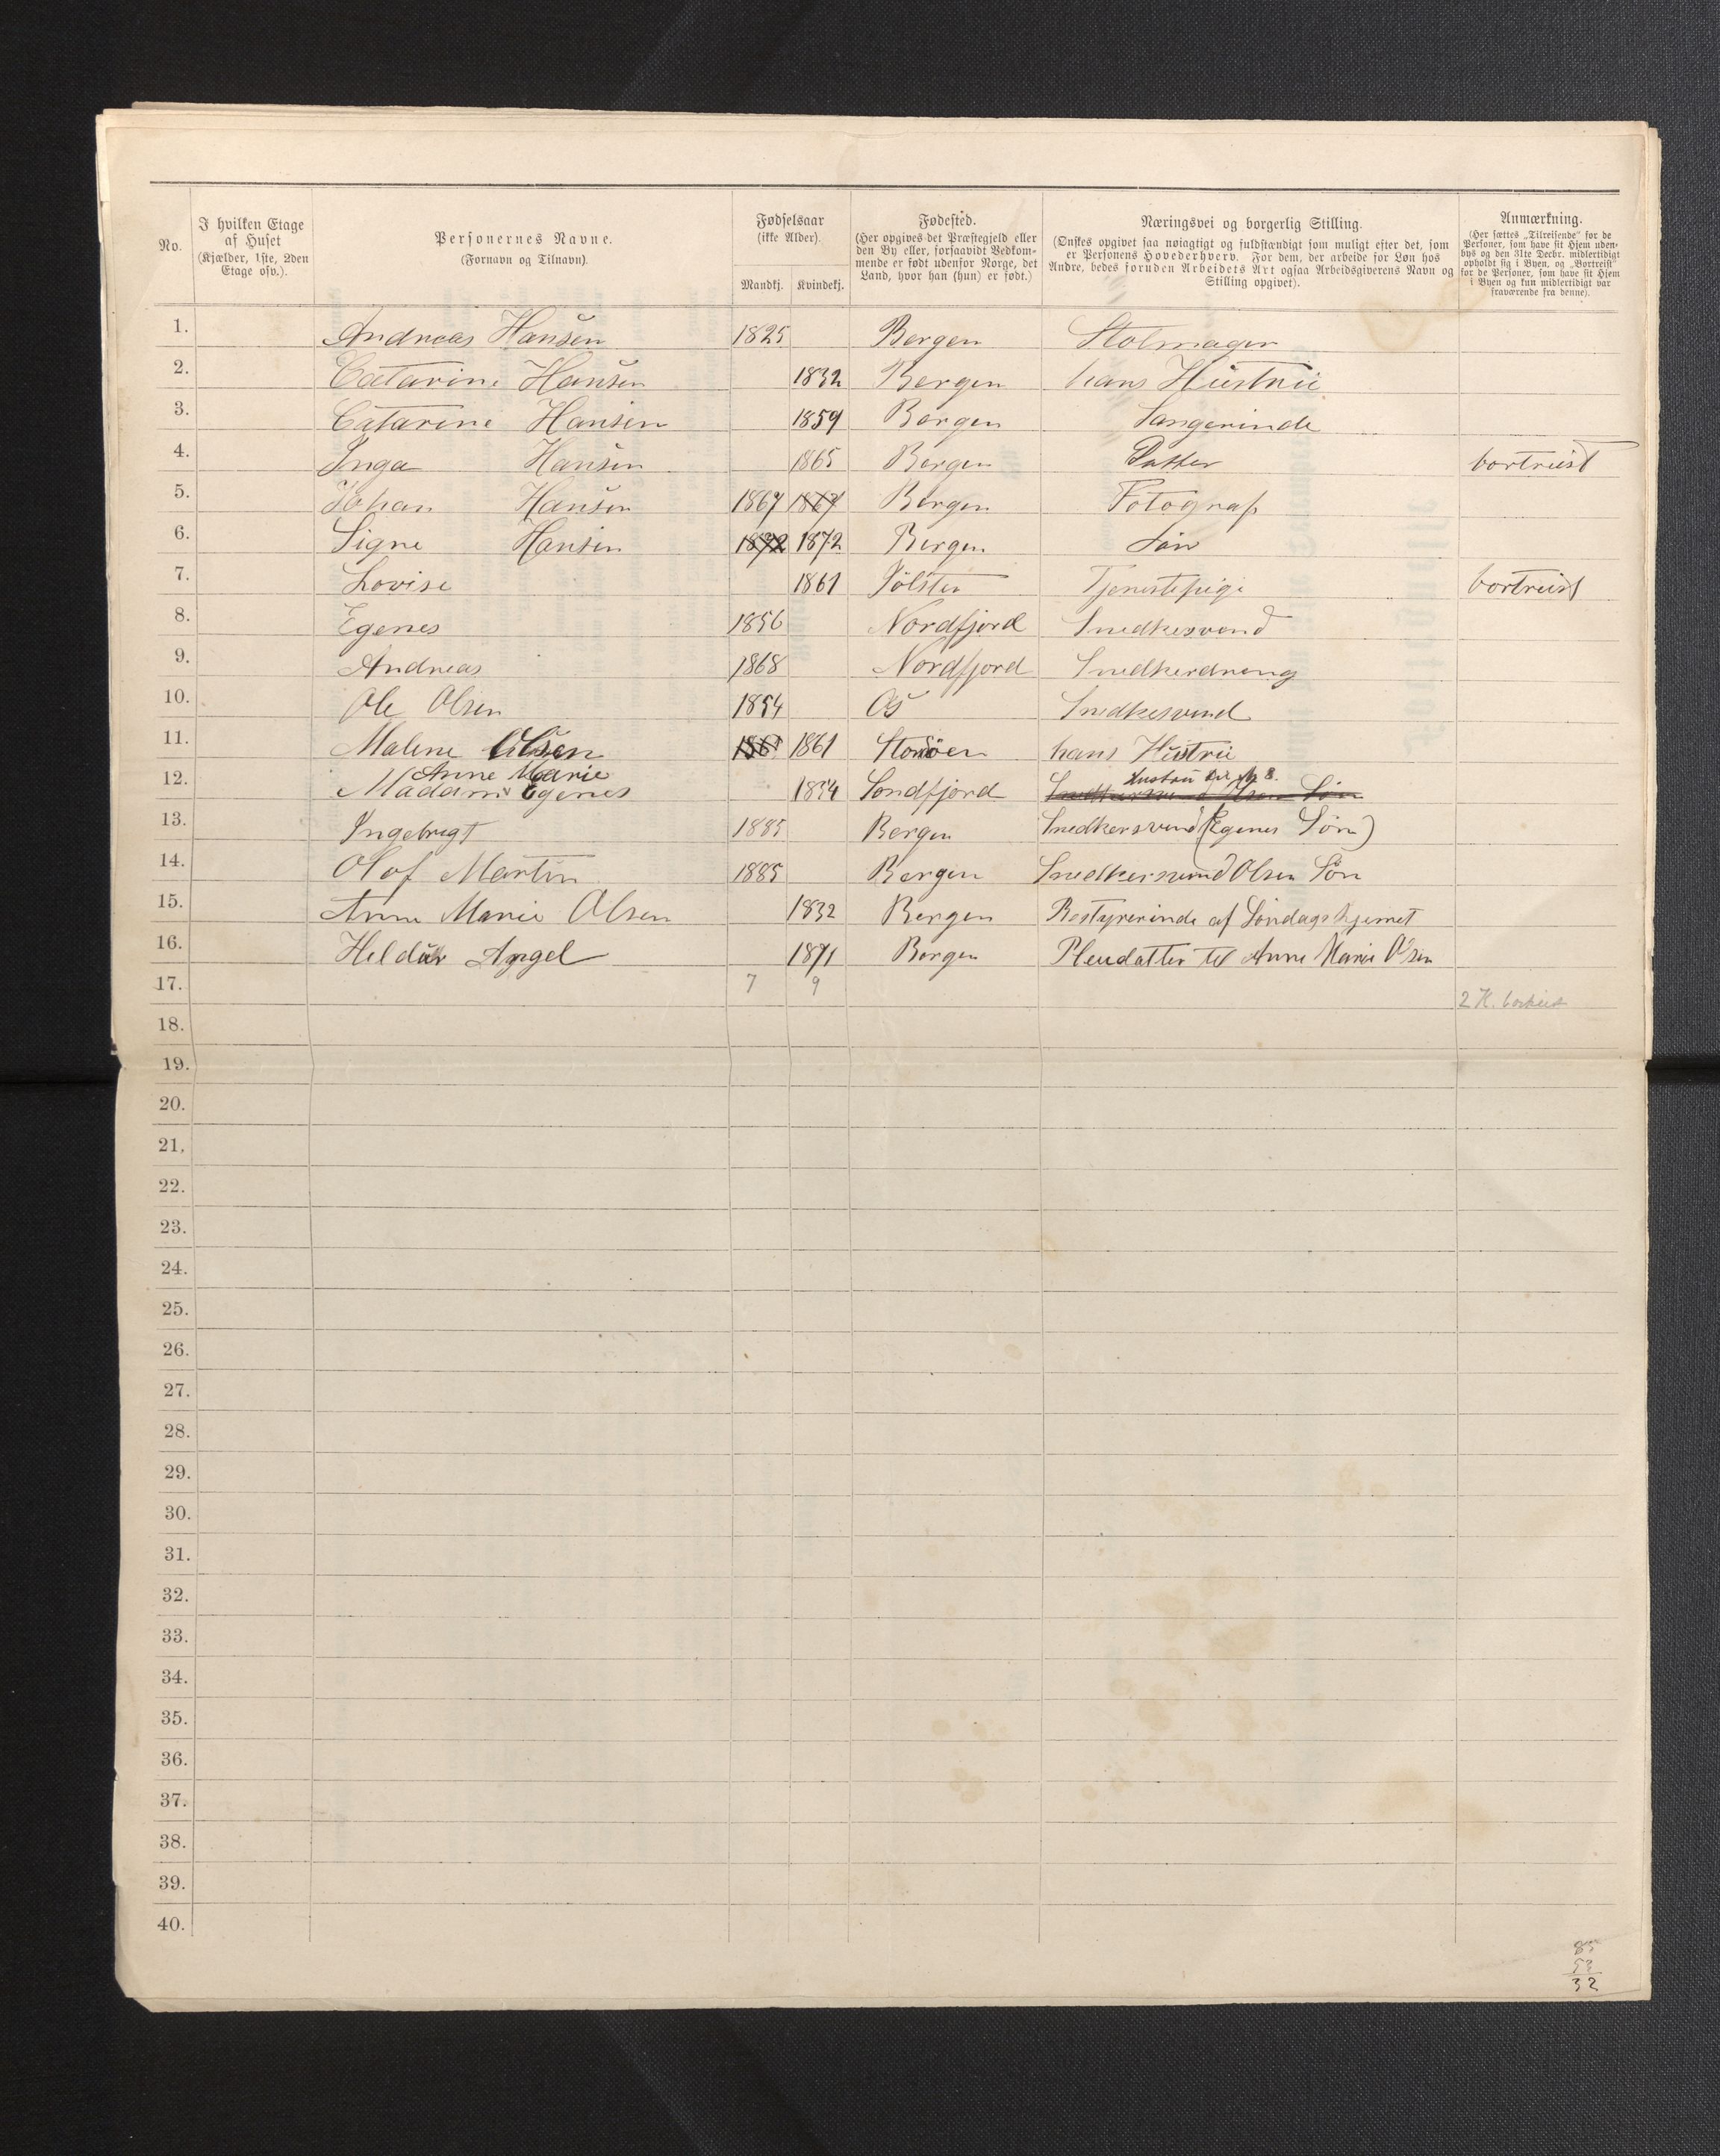 No.
I hvilken Etage
af Huset
(Kjælder, 1ste, 2den
Etage osv.).
Personernes Navne.
(Fornavn og Tilnavn).
Fødselsaar
(ikke Alder).
Mandkj. Kvindekj.
Fødested.
(Her opgives det Præstegjeld eller
den By eller, forsaavidt Vedkom-
mende er født udenfor Norge, det
Land, hvor han (hun) er født.)
Næringsvei og borgerlig Stilling.
(Ønskes opgivet saa nøiagtigt og fuldstændigt som muligt efter det, som
er Personens Hovederhverv. For dem, der arbeide for Løn hos
Andre, bedes foruden Arbeidets Art ogsaa Arbeidsgiverens Navn og
Stilling opgivet).
Anmærkning.
(Her sættes „Tilreisende" for de
Personer, som have sit Hjem uden-
bys og den 31te Decbr. midlertidigt
opholdt sig i Byen, og „Bortreist"
for de Personer, som have sit Hjem
i Byen og kun midlertidigt var
fraværende fra denne).
1. Andreas Hansen 1825 Bergen Stolmager
2. Catarine Hansen 1832 Bergen hans Hustru
3. Catarine Hansen 1859 Bergen Sangerinde
4. Inga Hansen 1865 Bergen Datter bortreist
5. Johan Hansen 1867 1867 Bergen Fotograf
6. Signe Hansen 1872 1872 Bergen
7. Lovise 1861 Jölster Tjenestepige bortreist
8. Egenes 1856 Nordfjord Snedkesvend
9. Andreas 1868 Nordfjord Snedkerdreng
10. Ole Olsen 1854 Os Snedkesvend
11. Malene Olsen 1861 1861 hans Hustru
Anne Marie Hustru til No 8.
12. Madam Egenes 1854 Søndfjord Snedkersvend Olsen Søn
13. Ingebrigt 1885 Bergen Snedkersvend (Egenes Søn)
14. Olaf Martin 1885 Bergen Snedkersvend Olsen Sön
15. Anne Marie Olsen 1832 Bergen Bestyrerinde af Søndagshjemet
16. Heldur Angel 1871 Bergen Pleiedatter til Anne Marie Olsen
17. 7 9
2 K. bortreist
18.
19.
20.
21.
22.
23.
24.
25.
26.
27.
28.
29.
30.
31.
32.
33.
34.
35.
36.
37.
38.
39.
40.
85
53
32